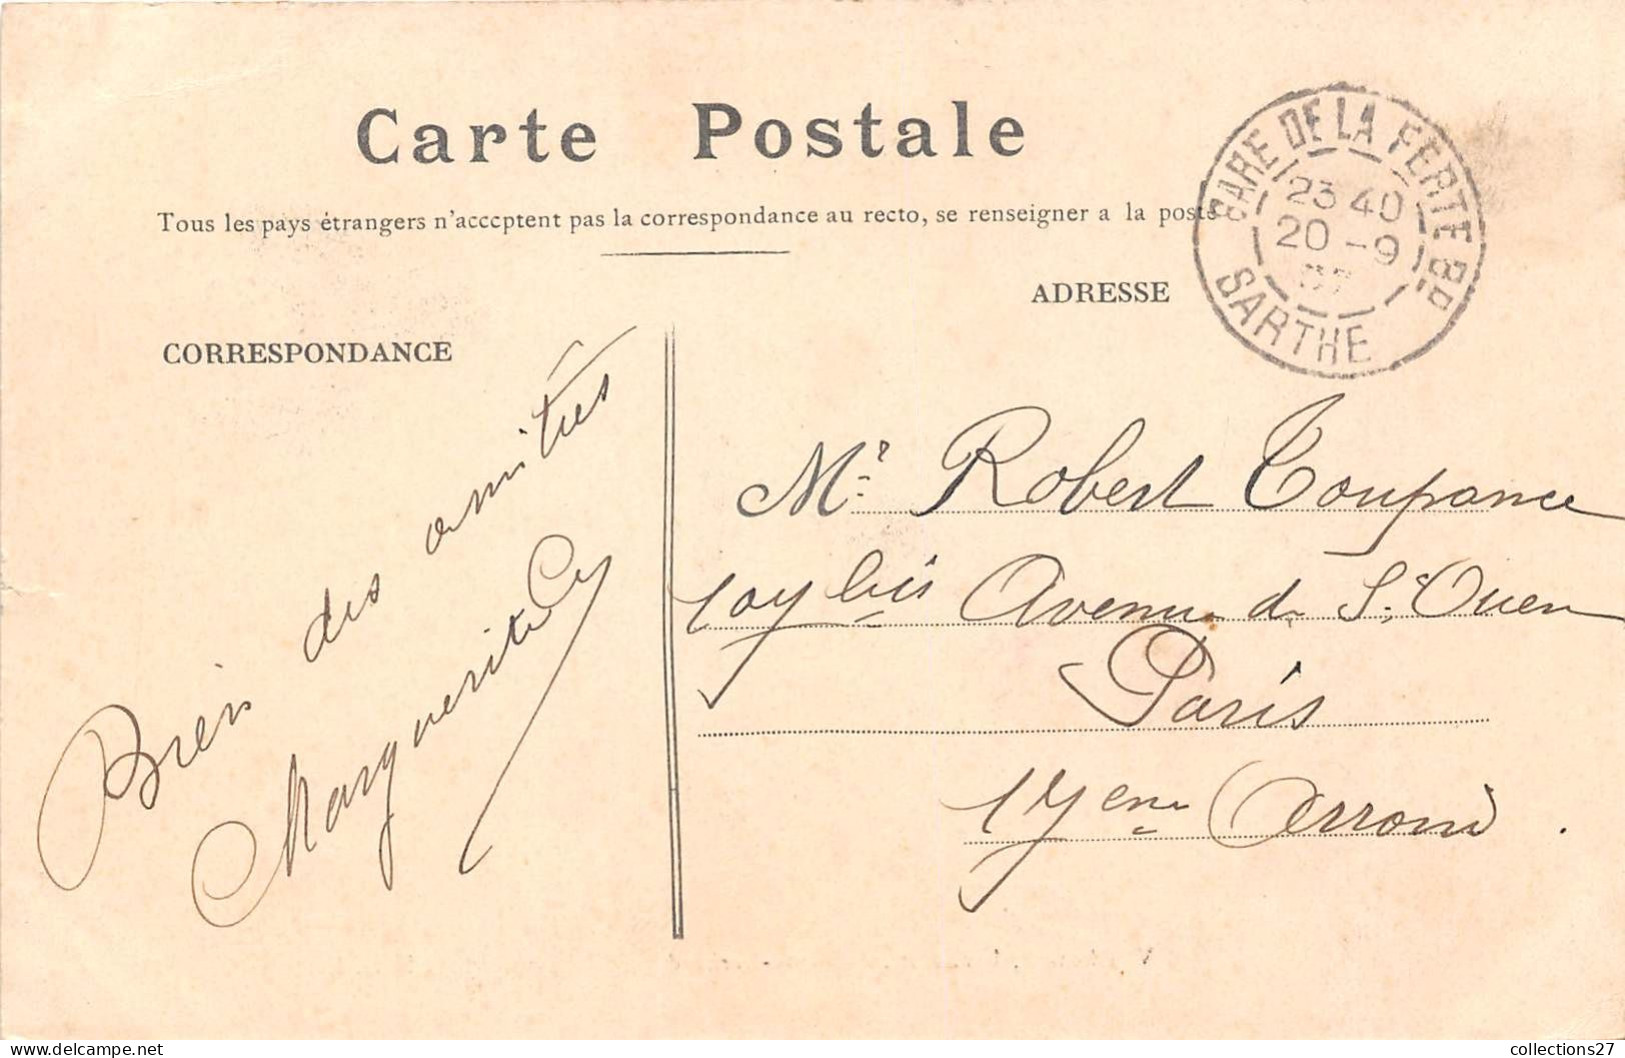 Carte Postale
Tous les pays étrangers n'acccptent pas la correspondance au recto, se renseigner a la poste
GARE DE LA FERTE BD
23 40
20 - 9
SARTHE
CORRESPONDANCE
ADRESSE
Bien des amitiés
Marguerite
Mr Robert Touprance
107 bis Avenue de St Ouen
Paris
17 eme Arrond
collections27